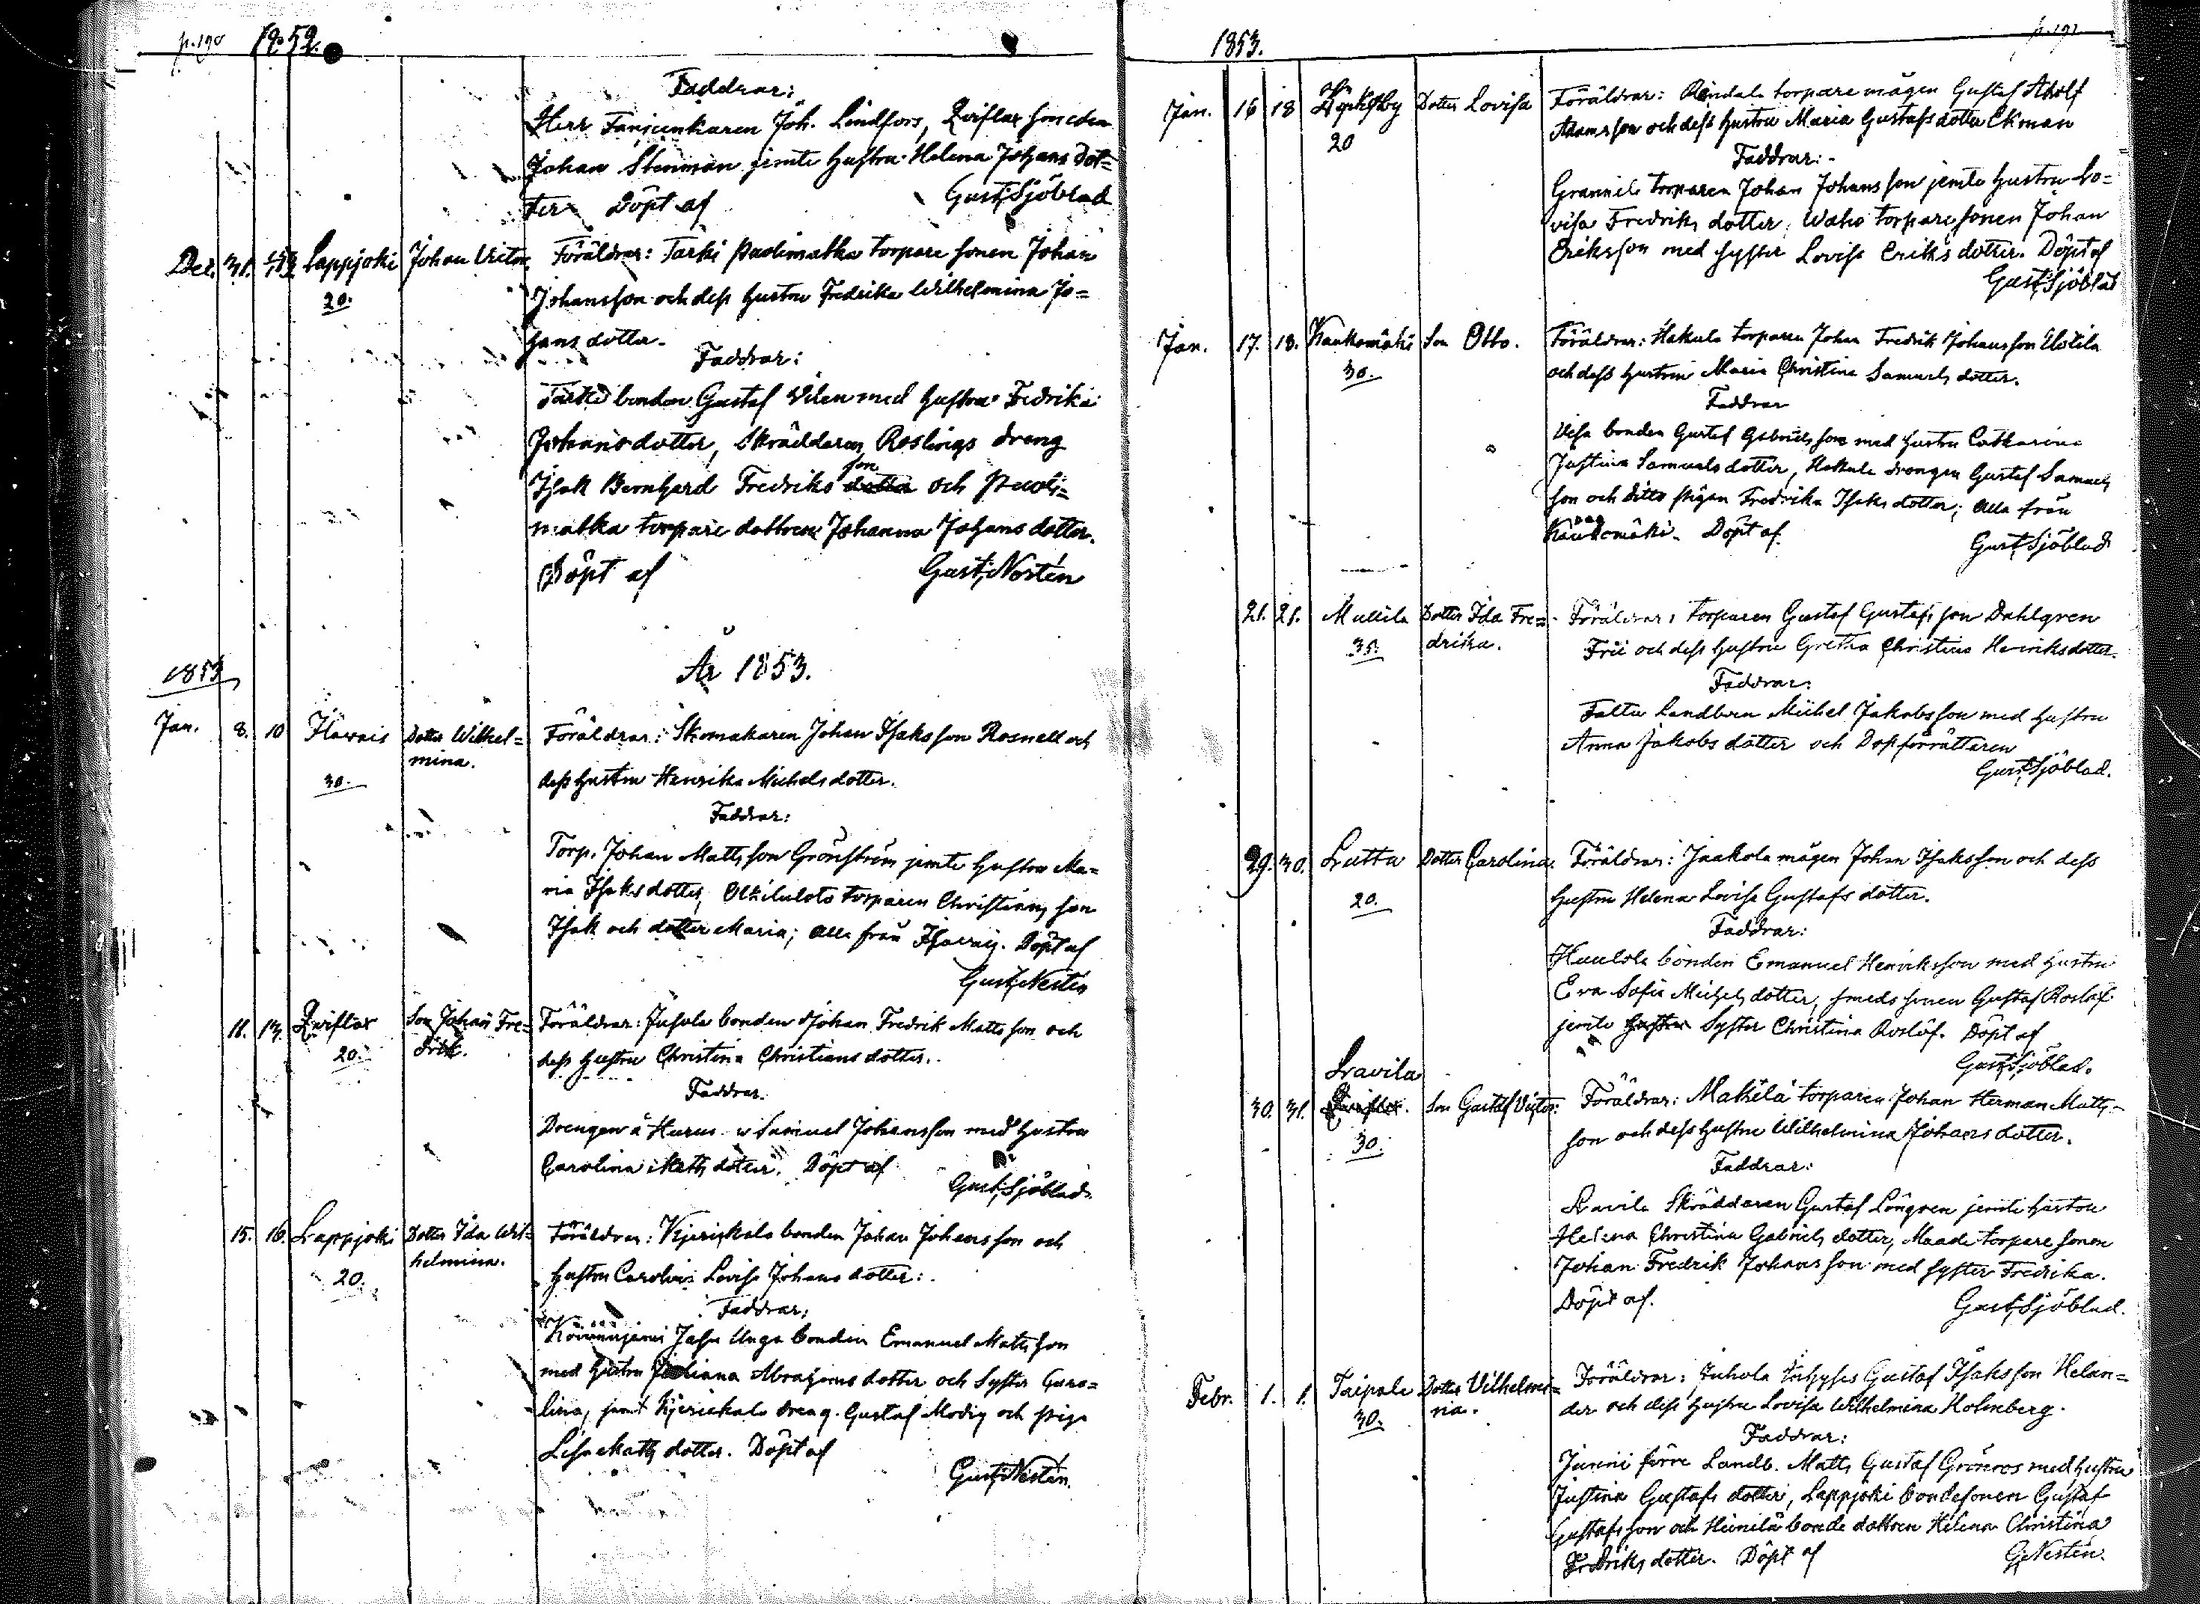 p. 190 1852.
Faddrar:
Herr Fanjunkaren Joh. Lindfors, Kuiflax
Johan Stenman jemte hustru Helena Johans dot=
ter Döpt af Gust. Sjöblad
Dec. 31. Lappjoki Johan Victor Föräldrar: Tarki Paulimatka torpare sonen Johan
20. Johansson och dess hustru Fredrika Wilhelmina Jo=
hans dotter.
Faddrar:
bonden Gustaf Vilen med hustru Fredrika
Johans dotter, Skräddaren Roslings dreng
son
Isak Bernhard Fredriks dotter och Pauli=
matka torpare dottren Johanna Johans dotter.
Döpt af Gust. Nestén
År 1853.
1853
Jan. 8. 10 Irjanne Dotter Wilhel= Föräldrar: Skomakaren Johan Isaksson Rosnell och
mina.
30. dess hustru Henrika Michels dotter.
Faddrar:
Torp. Johan Mattsson Grönström jemte hustru Ma=
ria Isaks dotter, torparen Christians son
Isak och dotter Maria; alla från Döpt af
Gust. Nestén
11. 13. Son Johan Fre= Föräldrar: Juhola bonden Johan Fredrik Matts son och
20. drik. dess hustru Christina Christians dotter.
Faddrar.
Drengen å Samuel Johansson med hustru
Carolina Matts dotter. Döpt af
Gust. Sjöblad.
15. 16. Lappjoki Dotter Ida Wil= Föräldrar: Kjerickala bonden Johan Johansson och
helmina.
20. hustru Carolina Lovisa Johans dotter.
Faddrar;
Unga bonden Emanuel Mattsson
med hustru Juliana Abrahams dotter och Syster Caro=
lina, jemt Kjerickala dreng Gustaf Modig och piga
Lisa Matts dotter. Döpt af
Gust. Nestén.
1853. p. 191
Jan. 16 18 Dotter Lovisa Föräldrar: torpare mågen Gustaf Adolf
20 Adamsson och dess hustru Maria Gustafs dotter Ekman
Faddrar:
Grannila torparen Johan Johansson jemte hustru Lo=
visa Fredriks dotter, Waho torpare sonen Johan
Eriksson med syster Lovisa Eriks dotter. Döpt af
Gust. Sjöblad
Jan. 17. 18. Kaukomäki Son Otto. Föräldrar: Hakula torparen Johan Fredrik Johansson Uotila
30. och dess hustru Maria Christina Samuels dotter.
Faddrar
bonden Gustaf Gabrielsson med hustru Catharina
Justina Samuels dotter, Hakula drengen Gustaf Samuels
son och ditto pigan Fredrika Isaks dotter; alla från
Kaukomäki. Döpt af Gust. Sjöblad
21. 21. Mullila Dotter Ida Fre= Föräldrar: torparen Gustaf Gustafsson Dahlgren
35. drika. och dess hustru Gretha Christina Henriks dotter.
Faddrar:
Landbon Michel Jakobsson med hustru
Anna Jakobs dotter och Dopförrättaren
Gust. Sjöblad.
29. 30. Lutta Dotter Carolina. Föräldrar: Jaakola mågen Johan Isaksson och dess
20. hustru Helena Lovisa Gustafs dotter.
Faddrar:
bonden Emanuel Henriksson med hustru
Eva Sofia Michels dotter, smeds sonen Gustaf Roslöf
jemte hustru Syster Christina Roslöf. Döpt af
Gust. Sjöblad.
Lavila
30. 31. Son Gustaf Victor: Föräldrar: Mäkilä torparen Johan Herman Matts-
30. son och dess hustru Wilhelmina Johans dotter.
Faddrar:
Lavila Skräddaren Gustaf Löngren jemte hustru
Helena Christina Gabriels dotter, Maade torpare sonen
Johan Fredrik Johansson med syster Fredrika.
Döpt af. Gust. Sjöblad.
Febr. 1. 1. Taipale Dotter Vilhelmi= Föräldrar: Juhola Inhyses Gustaf Isaksson Helan=
30. na. der och dess hustru Lovisa Wilhelmina Holmberg.
Faddrar:
Junni förre Landb. Matts Gustaf Grönroos med hustru
Justina Gustafs dotter, Lappjoki bondesonen Gustaf
Gustafsson och Heinilä bonde dottren Helena Christina
Fredriks dotter. Döpt af G. Nestén.